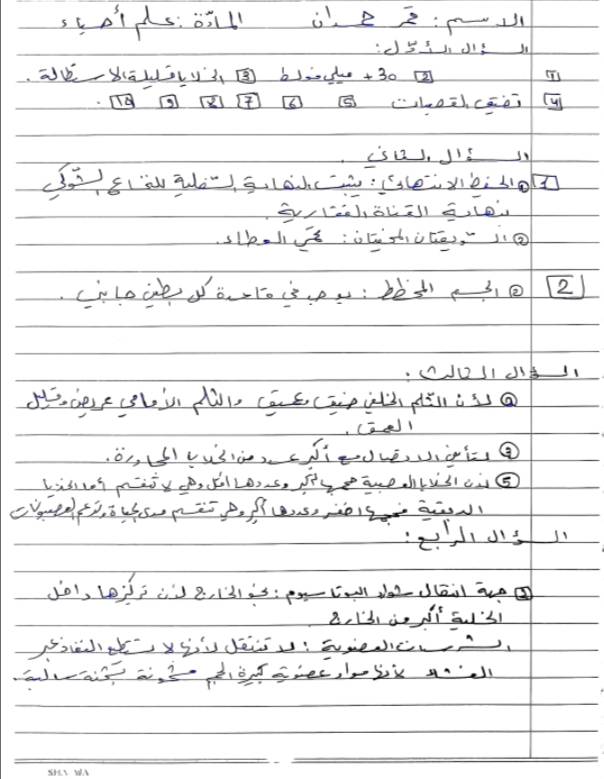 الاسم: حمدان المادّة: علم أحياء
السؤال الأول:
[1] [2] +30 ميلي فولط [3] الخلايا قليلة الاستطالة.
[4] تضيق القصبات [5] [6] [7] [8] [9] [10].
السؤال الثاني.
[1] ① الخيط الانتهائي: يثبت النهاية السفلية للنخاع الشوكي
بنهاية القناة الفقارية.
② التويقتان المخيتان: مخي العطاء.
[2] ② الجسم المخطط: يوجد في قاعدة كل بطين جانبي.
السؤال الثالث:
② لأن الثلم الخلفي ضيق وعميق والثلم الأمامي عريض وقليل
العمق.
③ لتأمين الاتصال مع أكبر عدد من الخلايا المجاورة.
⑤ لأن الخلايا العصبية حجمها أكبر وعددها أقل وهي لا تنقسم أما الخلايا
الدبقية حجمها أصغر وعددها أكبر وهي تنقسم مدى الحياة وتدعم العصبونات
السؤال الرابع:
[3] جهة انتقال شوارد البوتاسيوم: نحو الخارج لأن تركيزها داخل
الخلية أكبر من الخارج.
الشرسبات العضوية: لا تنتقل لأنها لا تستطيع النفاذ عبر
الغشاء لأنها مواد عضوية كبيرة الحجم مشحونة بشحنة سالبة.
SHA WA